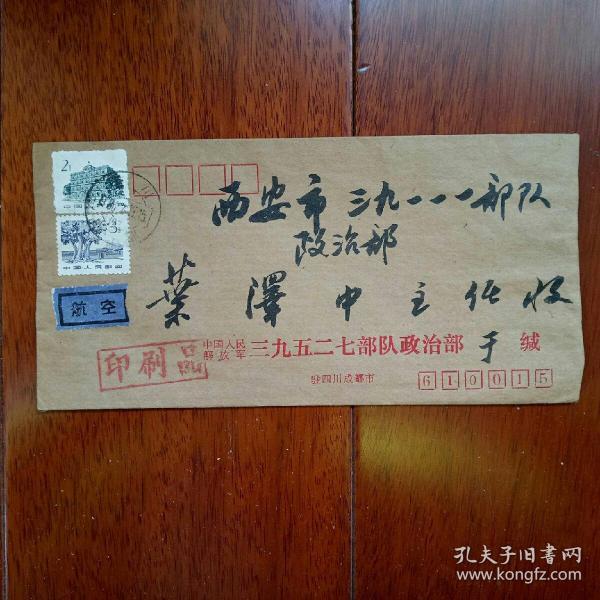 2分
中国
3分
中国人民邮政
航空
西安市三九一一一部队
政治部
葉澤中主任收
印刷品
中国人民
解放军
三九五二七部队政治部 于 缄
驻四川成都市
610015
孔夫子旧书网
www.kongfz.com